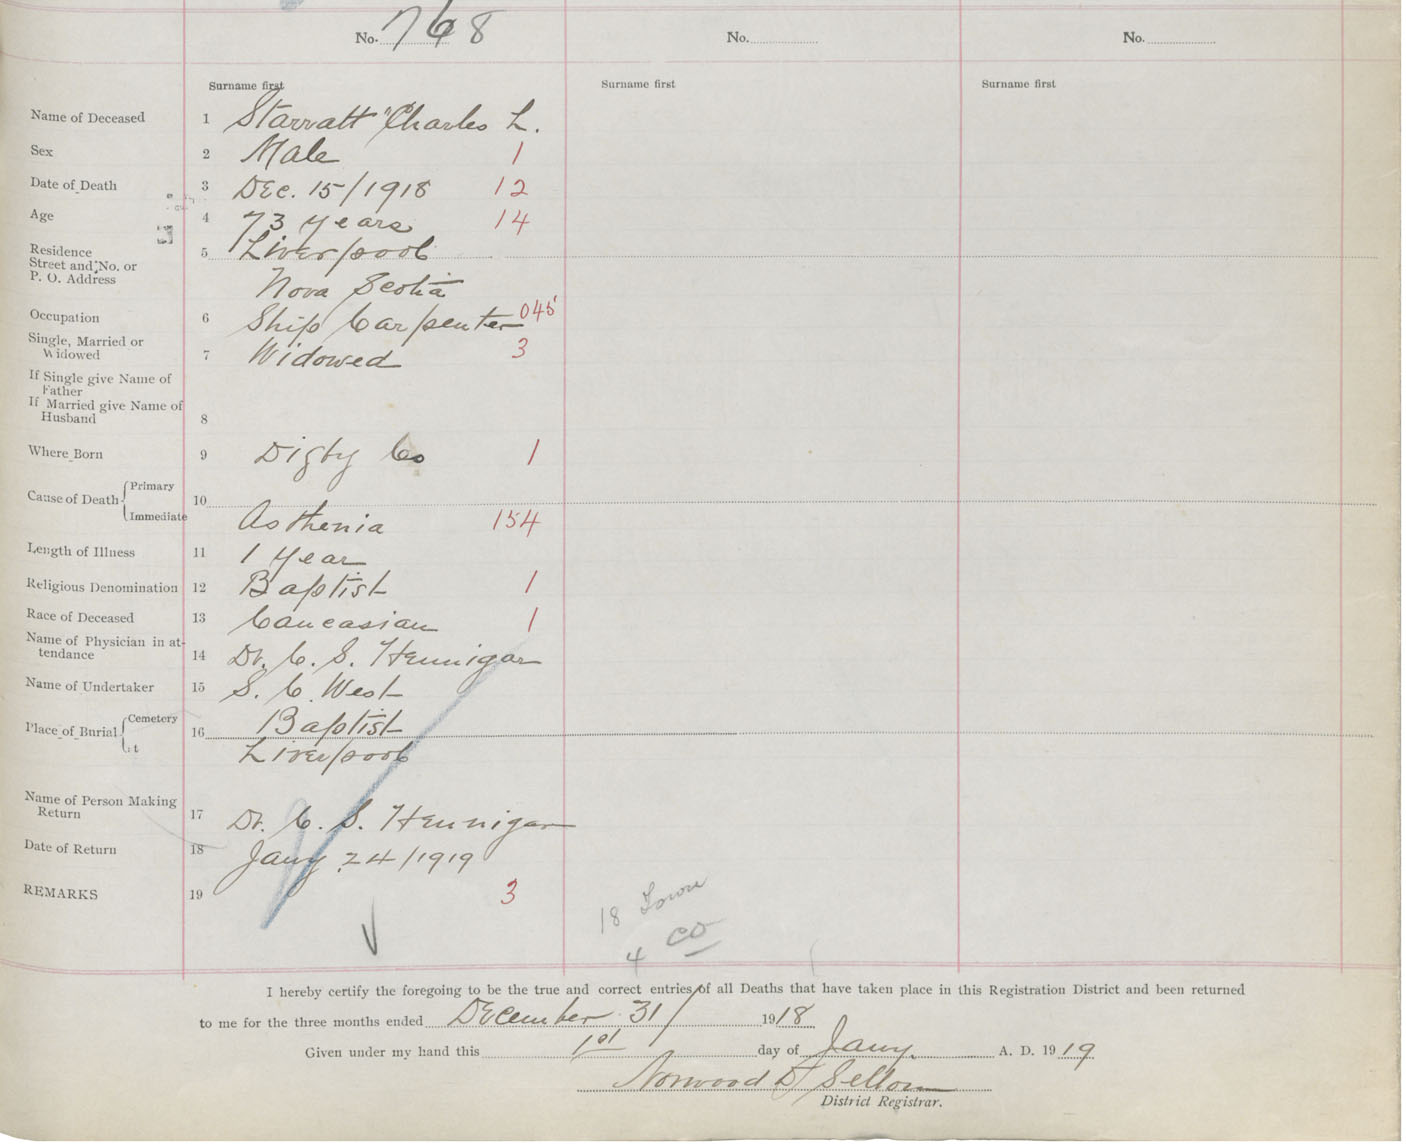 No. 768 No. No.
Surname first Surname first Surname first
Name of Deceased 1 Starratt "Charles L.
Sex 2 Male 1
Date of Death 3 Dec. 15/1918 12
Age 4 73 years 14
Residence
Street and No. or
P. O. Address
5 Liverpool
Nova Scotia
Occupation 6 Ship Carpenter 045
Single, Married or
Widowed 7 Widowed 3
If Single give Name of
Father
If Married give Name of
Husband 8
Where Born 9 Digby Co 1
Cause of Death Primary
Immediate
10
Asthenia 154
Length of Illness 11 1 year
Religious Denomination 12 Baptist 1
Race of Deceased 13 Caucasian 1
Name of Physician in at-
tendance 14 Dr. C. S. Hennigar
Name of Undertaker 15 S. C. West
Place of Burial Cemetery
16 Baptist
Liverpool
Name of Person Making
Return 17 Dr. C. S. Hennigar
Date of Return 18 Jany 24/1919
REMARKS 19 3
18 Town
4 CO
I hereby certify the foregoing to be the true and correct entries of all Deaths that have taken place in this Registration District and been returned
to me for the three months ended December 31/ 1918
Given under my hand this 1st day of Jany. A. D. 1919
Norwood
District Registrar.